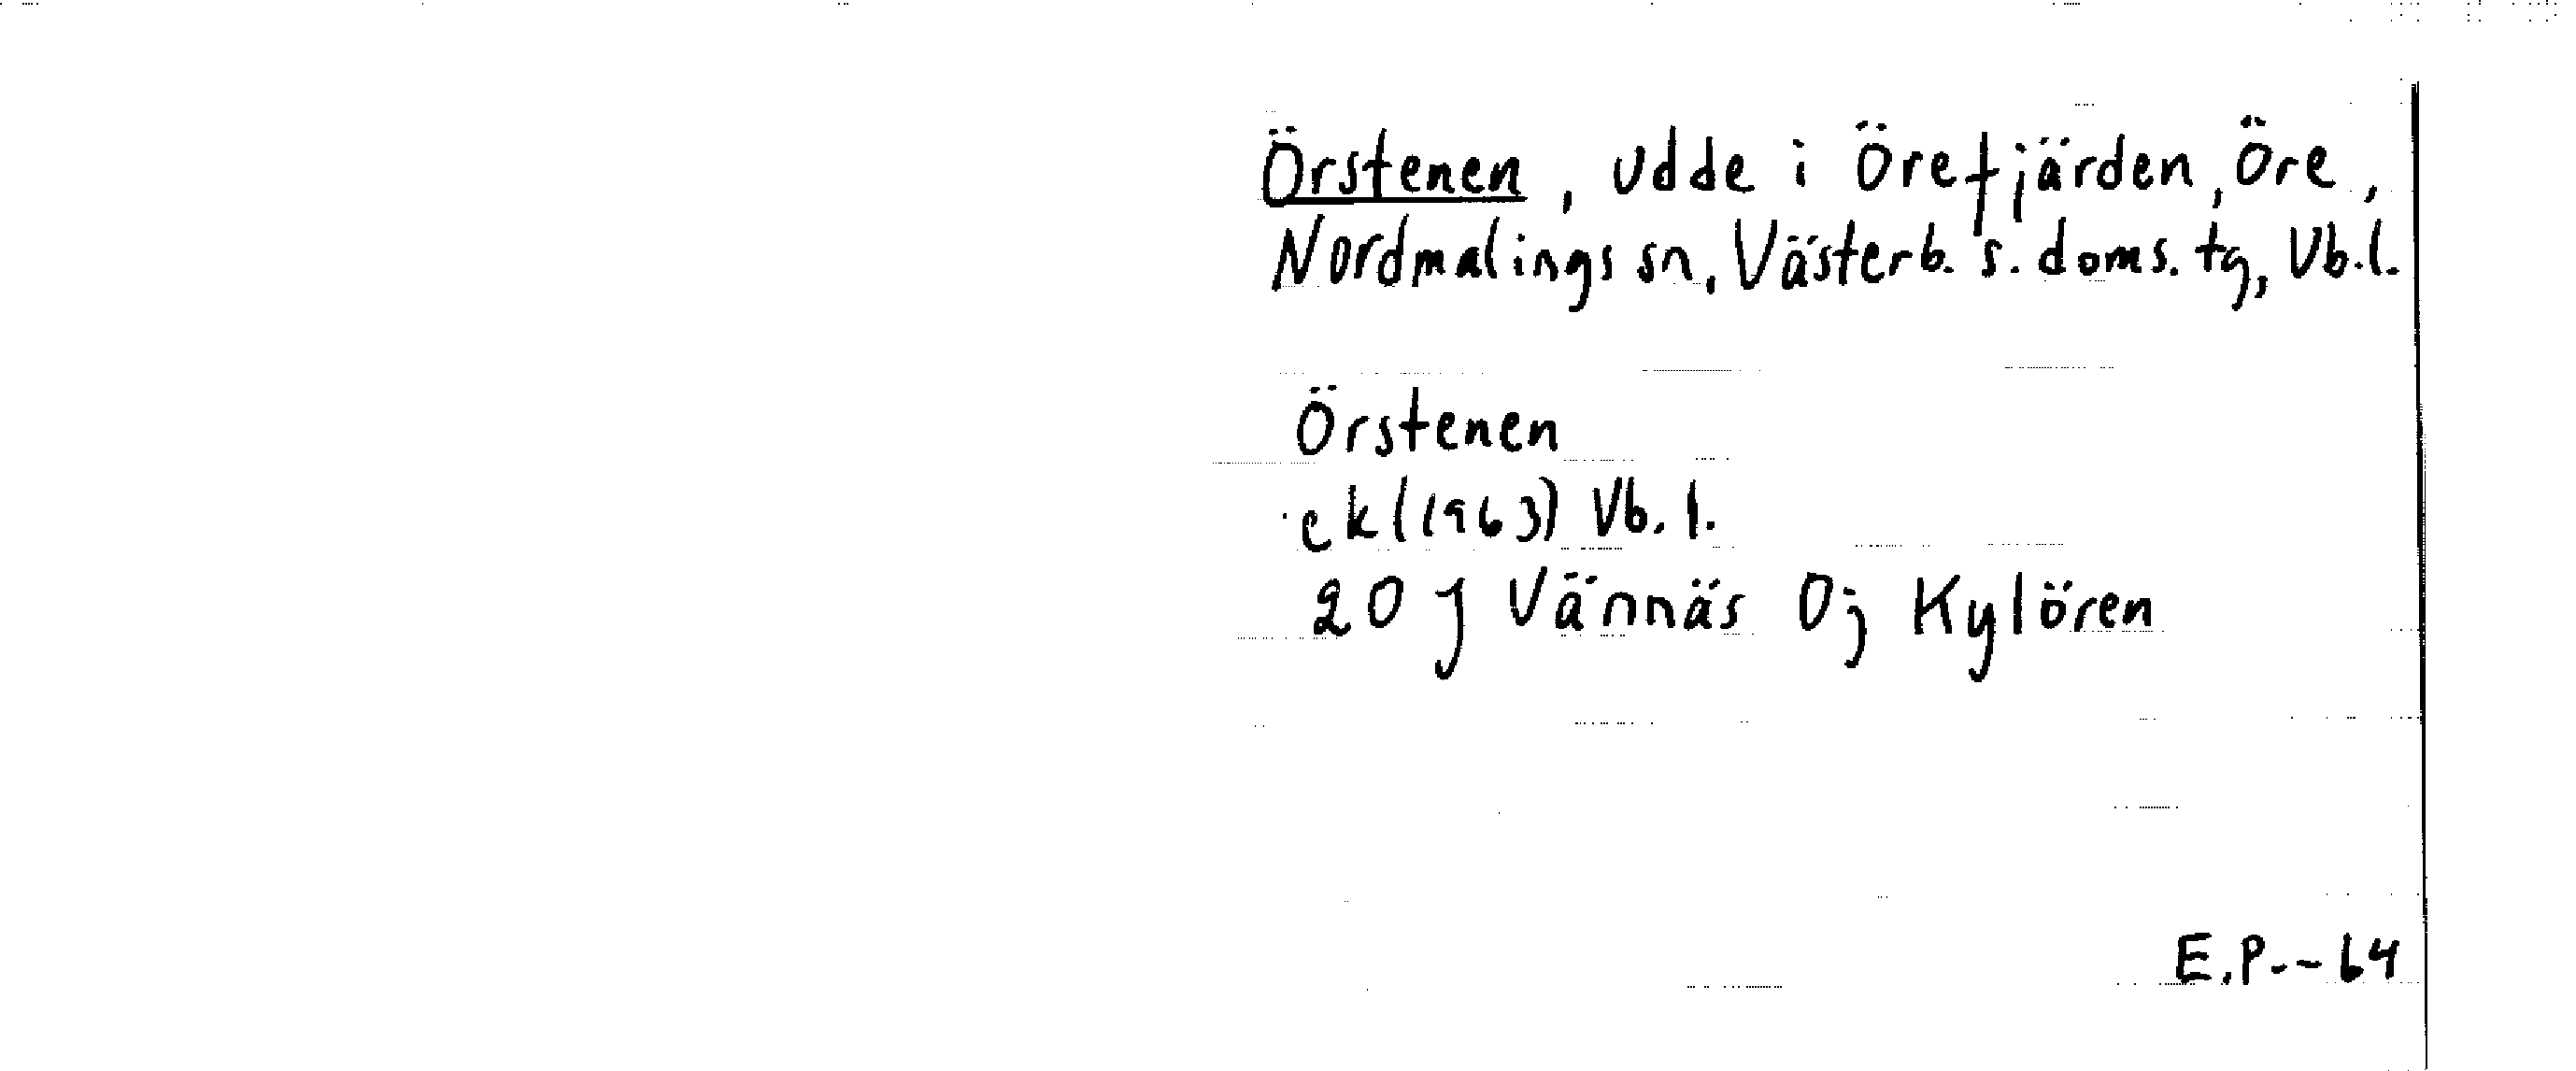 Örstenen, udde i Örefjärden, Öre,
Nordmalings sn, Västerb. s. doms. tg, Vb.l.
Örstenen
ek (1963) Vb. l.
20 J Vännäs 0j Kylören
E.P.--64